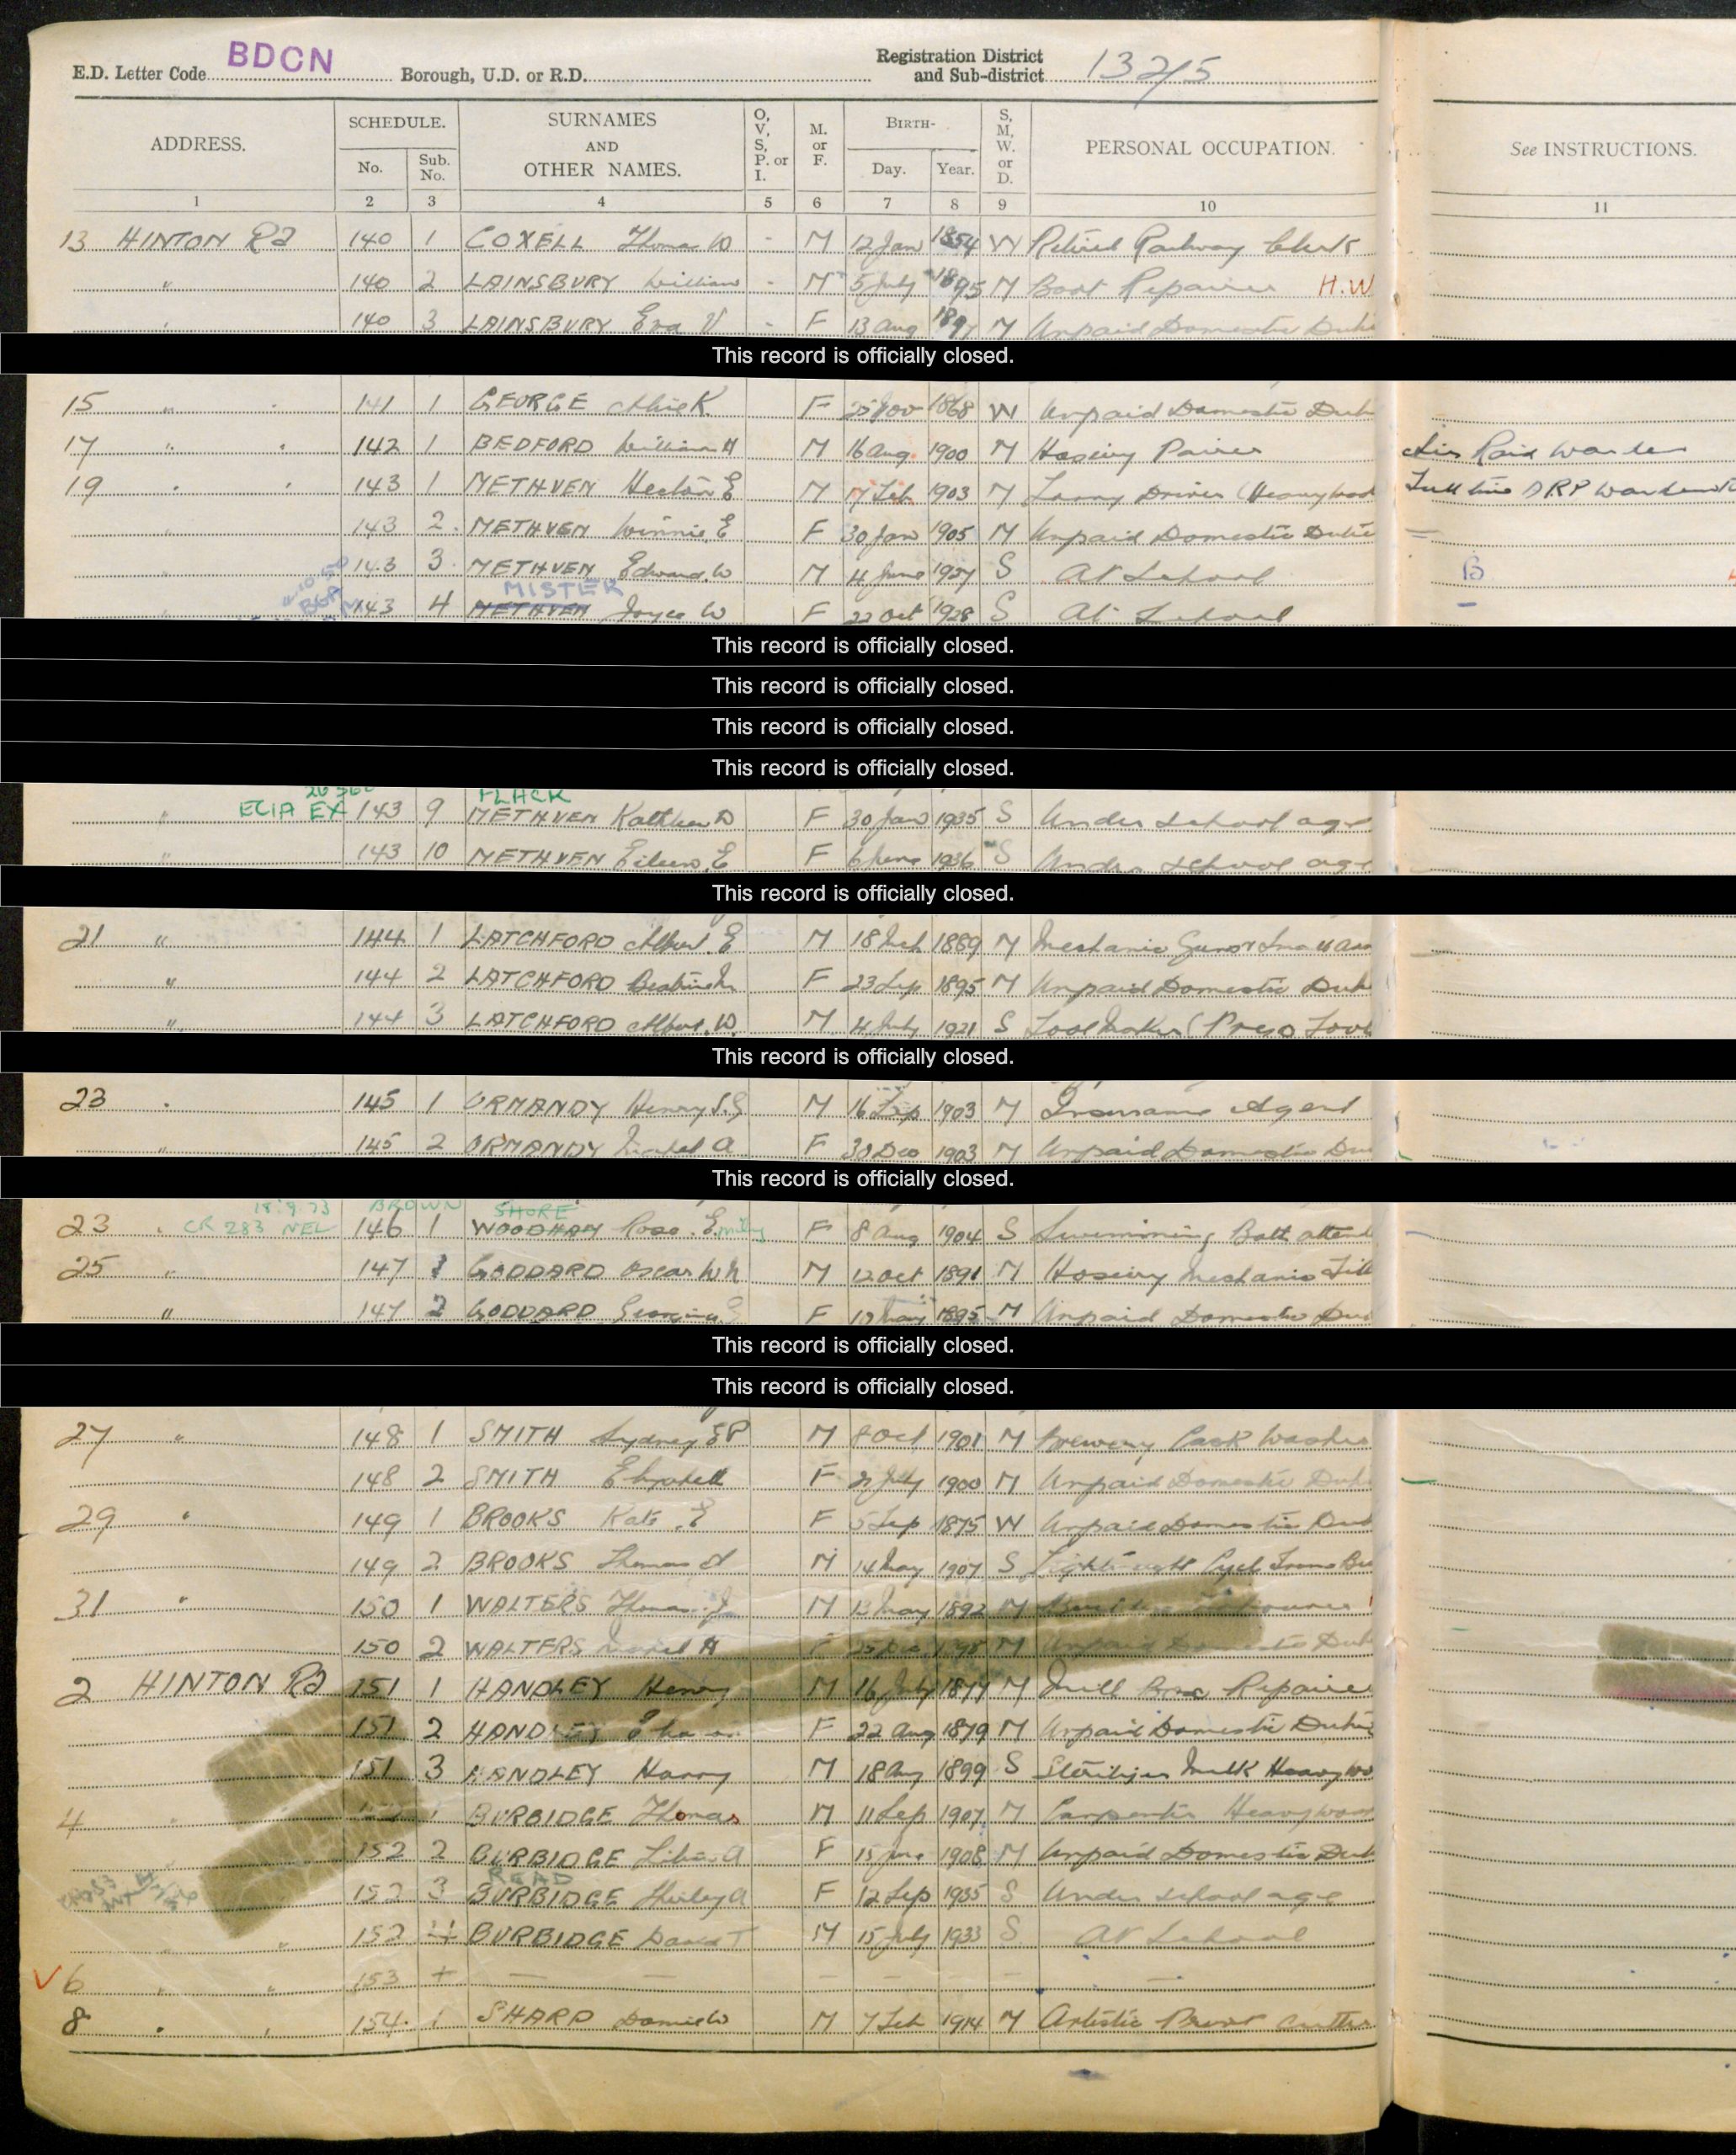 E.D. Letter Code BDCN Borough, U.D. or R.D. Registration District and Sub-district 132/5
ADDRESS. SCHEDULE. No. Sub. No. SURNAMES AND OTHER NAMES. O, V, S, P. or I. M. or F. BIRTH- Day. Year. S, M, W. or D. PERSONAL OCCUPATION. See INSTRUCTIONS.
1 2 3 4 5 6 7 8 9 10 11
13 HINTON Rd 140 1 COXELL Thomas W - M 12 Jan 1854 W Retired Railway Clerk
" 140 2 LAINSBURY William - M 5 July 1895 M Boot Repairer H.W
" 140 3 LAINSBURY Eva V - F 13 Aug 1897 M Unpaid Domestic Duti
This record is officially closed.
15 " 141 1 GEORGE K F 25 Nov 1868 W Unpaid Domestic Duti
17 " 142 1 BEDFORD William H M 16 Aug. 1900 M Hosiery Pairer Air Raid Warden
19 " 143 1 METHVEN Hector E M 17 Feb 1903 M Lorry Driver (Heavy Full time ARP
143 2. METHVEN Winnie. E F 30 Jan 1905 M Unpaid Domestic Dutie
143 3. METHVEN Edward. W M 4 June 1927 S At School B
MISTER
143 4 METHVEN Joyce W F 22 Oct 1928 S At School
This record is officially closed.
This record is officially closed.
This record is officially closed.
This record is officially closed.
FLACK
ECIA EX 143 9 METHVEN Kathleen D F 30 Jan 1935 S Under school age
" 143 10 METHVEN Eileen. E F 6 June 1936 S Under school age
This record is officially closed.
21 " 144 1 LATCHFORD Albert. E M 18 1889 M Mechanic Guns &
" 144 2 LATCHFORD F 23 Sep 1895 M Unpaid Domestic Duti
" 144 3 LATCHFORD Albert. W. M 4 July 1921 S Tool Maker (Press Tool
This record is officially closed.
23 145 1 ORMANDY Henry M 16 Sep 1903 M Insurance Agent
145 2 ORMANDY Mabel A F 30 Dec 1903 M Unpaid Domestic Du
This record is officially closed.
18.9.73 BROWN SHORE
23 " CR 283 NEL 146 1 WOODHAM Rose. Emily F 8 Aug 1904 S Swimming Bath attend
25 " 147 1 GODDARD Oscar W M 12 Oct 1891 M Hosiery Mechanic
" 147 2 GODDARD Georgina F 1895 M Unpaid Domestic Du
This record is officially closed.
This record is officially closed.
27 " 148 1 SMITH Sydney M 8 Oct 1901 M Brewery Cask Washer
148 2 SMITH Elizabeth F July 1900 M Unpaid Domestic Duti
29 " 149 1 BROOKS Kate. E F 5 Sep 1875 W Unpaid Domestic Duti
149 2 BROOKS Thomas M 14 May 1907 S Cycle
31 " 150 1 WALTERS Thomas. J M 13 May 1892 M
150 2 WALTERS Mabel H F 25 Dec M Unpaid Domestic Duti
2 HINTON Rd 151 1 HANDLEY Henry M 16 July M Repairer
151 2 HANDLEY F 22 Aug 1879 M Unpaid Domestic Duties
151 3 HANDLEY Harry M 18 Aug 1899 S Steriliser Milk Heavy wo
4 " 1 BURBIDGE Thomas M 11 Sep 1907 M Carpenter Heavy
152 2 BURBIDGE F 15 1908 M Unpaid Domestic Duti
READ
152 3 BURBIDGE Shirley A F 12 Sep 1935 S Under school age
" " 152 4 BURBIDGE David T M 15 July 1933 S At School
6 " " 153 + — — — — — — —
8 " " 154 1 SHARD M 7 Feb 1914 M Artistic